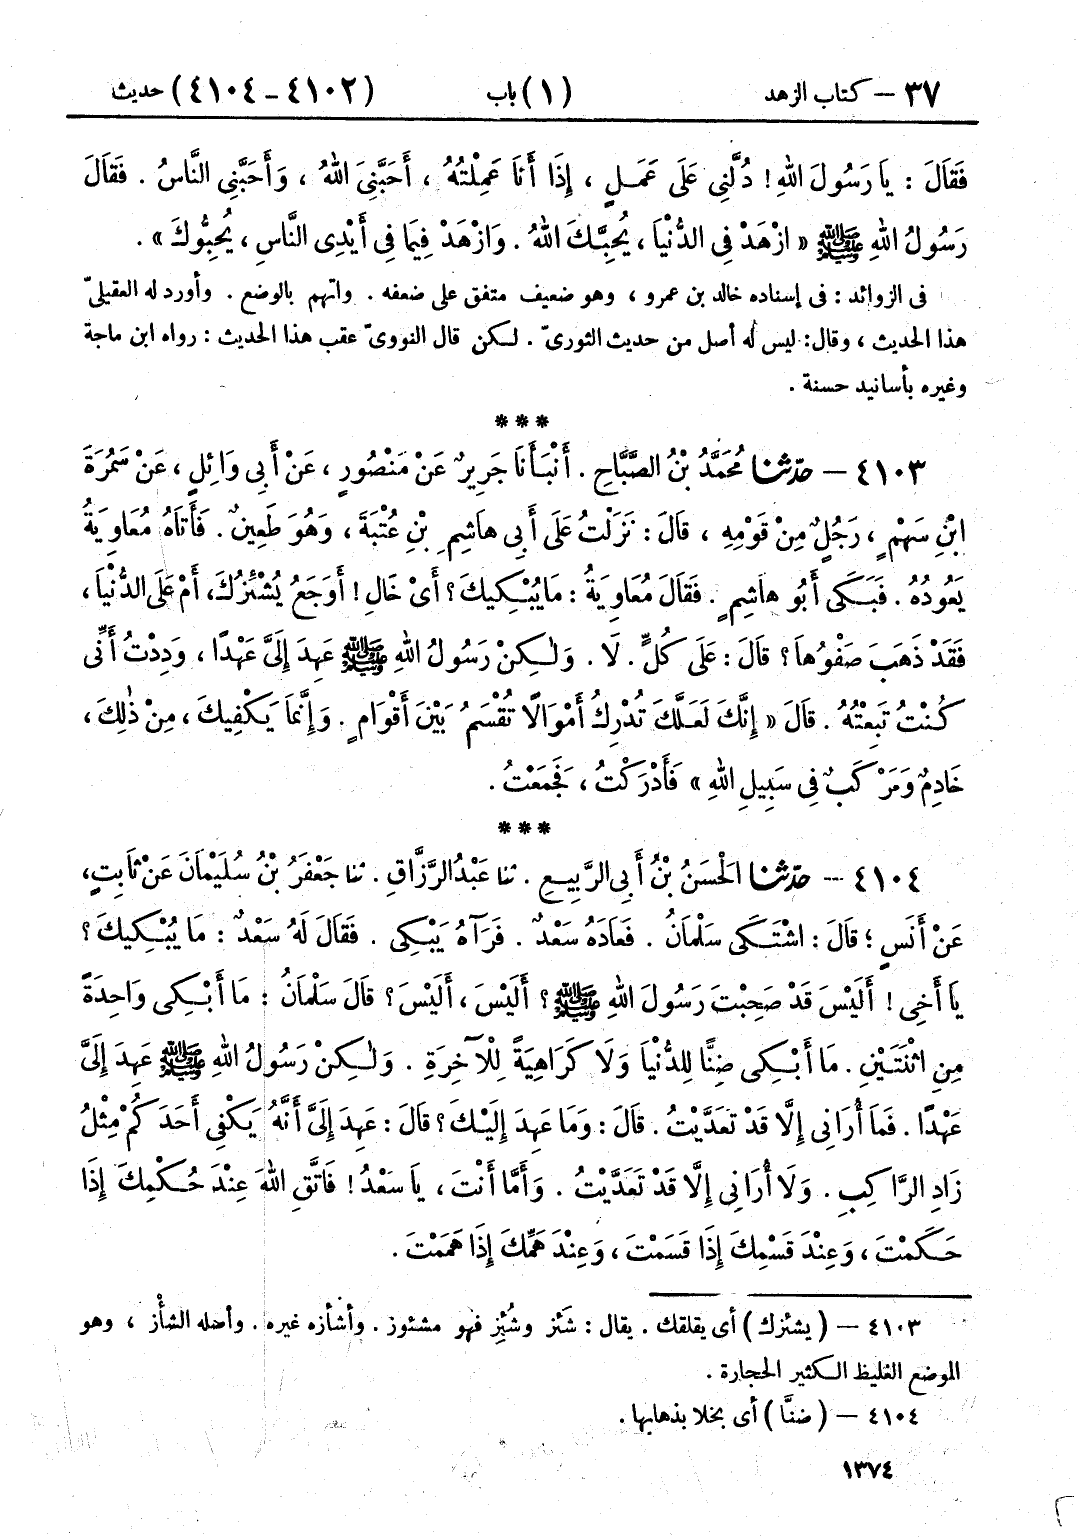 ٣٧ – كتاب الزهد (١) باب (٤١٠٢ - ٤١٠٤) حديث
فَقَالَ : يَا رَسُولَ اللهِ ! دُلَّنِي عَلَى عَمَلٍ ، إِذَا أَنَا عَمِلْتُهُ ، أَحَبَّنِيَ اللهُ ، وَأَحَبَّنِي النَّاسُ . فَقَالَ
رَسُولُ اللهِ ﷺ « ازْهَدْ فِي الدُّنْيَا ، يُحِبَّكَ اللهُ . وَازْهَدْ فِيمَا فِي أَيْدِي النَّاسِ ، يُحِبُّوكَ » .
فى الزوائد : فى إسناده خالد بن عمرو ، وهو ضعيف متفق على ضعفه . واتهم بالوضع . وأورد له العقيلىّ
هذا الحديث ، وقال: ليس له أصل من حديث الثورىّ . لكن قال النووىّ عقب هذا الحديث : رواه ابن ماجة
وغيره بأسانيد حسنة .
* * *
٤١٠٣ – حدّثنا مُحَمَّدُ بْنُ الصَّبَّاحِ . أَنْبَأَنَا جَرِيرٌ عَنْ مَنْصُورٍ ، عَنْ أَبِي وَائِلٍ ، عَنْ سَمُرَةَ
ابْنِ سَهْمٍ ، رَجُلٌ مِنْ قَوْمِهِ ، قَالَ : نَزَلْتُ عَلَى أَبِي هَاشِمِ بْنِ عُتْبَةَ ، وَهُوَ طَعِينٌ . فَأَتَاهُ مُعَاوِيَةُ
يَعُودُهُ . فَبَكَى أَبُو هَاشِمٍ . فَقَالَ مُعَاوِيَةُ : مَا يُبْكِيكَ ؟ أَيْ خَالِ ! أَوَجَعٌ يُشْئِزُكَ ، أَمْ عَلَى الدُّنْيَا ،
فَقَدْ ذَهَبَ صَفْوُهَا ؟ قَالَ : عَلَى كُلٍّ . لَا . وَلٰكِنْ رَسُولُ اللهِ ﷺ عَهِدَ إِلَيَّ عَهْدًا ، وَدِدْتُ أَنِّي
كُنْتُ تَبِعْتُهُ . قَالَ « إِنَّكَ لَعَلَّكَ تُدْرِكُ أَمْوَالًا تُقْسَمُ بَيْنَ أَقْوَامٍ . وَإِنَّمَا يَكْفِيكَ ، مِنْ ذٰلِكَ ،
خَادِمٌ وَمَرْكَبٌ فِي سَبِيلِ اللهِ » فَأَدْرَكْتُ ، فَجَمَعْتُ .
* * *
٤١٠٤ – حدّثنا الْحَسَنُ بْنُ أَبِي الرَّبِيعِ . ثنا عَبْدُ الرَّزَّاقِ . ثنا جَعْفَرُ بْنُ سُلَيْمَانَ عَنْ ثَابِتٍ ،
عَنْ أَنَسٍ ؛ قَالَ : اشْتَكَى سَلْمَانُ . فَعَادَهُ سَعْدٌ . فَرَآهُ يَبْكِي . فَقَالَ لَهُ سَعْدٌ : مَا يُبْكِيكَ ؟
يَا أَخِي ! أَلَيْسَ قَدْ صَحِبْتَ رَسُولَ اللهِ ﷺ ؟ أَلَيْسَ ، أَلَيْسَ ؟ قَالَ سَلْمَانُ : مَا أَبْكِي وَاحِدَةً
مِنِ اثْنَتَيْنِ . مَا أَبْكِي ضِنًّا لِلدُّنْيَا وَلَا كَرَاهِيَةً لِلْآخِرَةِ . وَلٰكِنْ رَسُولُ اللهِ ﷺ عَهِدَ إِلَيَّ
عَهْدًا . فَمَا أُرَانِي إِلَّا قَدْ تَعَدَّيْتُ . قَالَ : وَمَا عَهِدَ إِلَيْكَ ؟ قَالَ : عَهِدَ إِلَيَّ أَنَّهُ يَكْفِي أَحَدَكُمْ مِثْلُ
زَادِ الرَّاكِبِ . وَلَا أُرَانِي إِلَّا قَدْ تَعَدَّيْتُ . وَأَمَّا أَنْتَ ، يَا سَعْدُ ! فَاتَّقِ اللهَ عِنْدَ حُكْمِكَ إِذَا
حَكَمْتَ ، وَعِنْدَ قَسْمِكَ إِذَا قَسَمْتَ ، وَعِنْدَ هَمِّكَ إِذَا هَمَمْتَ .
٤١٠٣ – ( يشئزك ) أى يقلقك . يقال : شَئز وشُئِز فهو مشئوز . وأشأزه غيره . وأصله الشأْز ، وهو
الموضع الغليظ الكثير الحجارة .
٤١٠٤ – ( ضنًّا ) أى بخلا بذهابها .
١٣٧٤